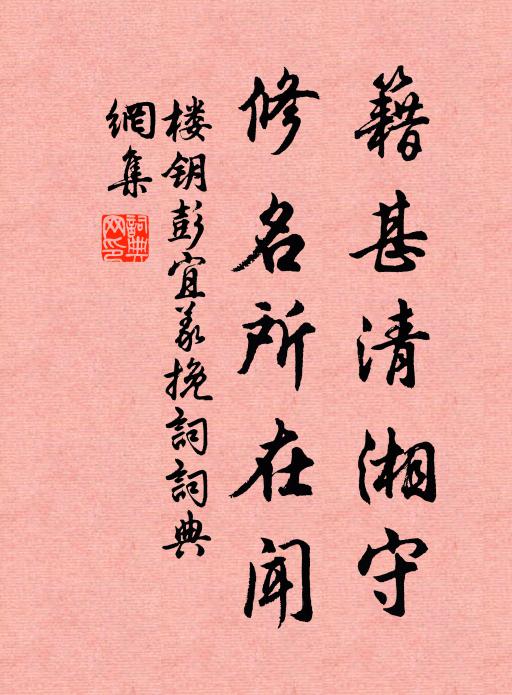 籍甚清湘守
修名所在闻
楼钥彭宜义挽詞詞典
網集
詞典网印